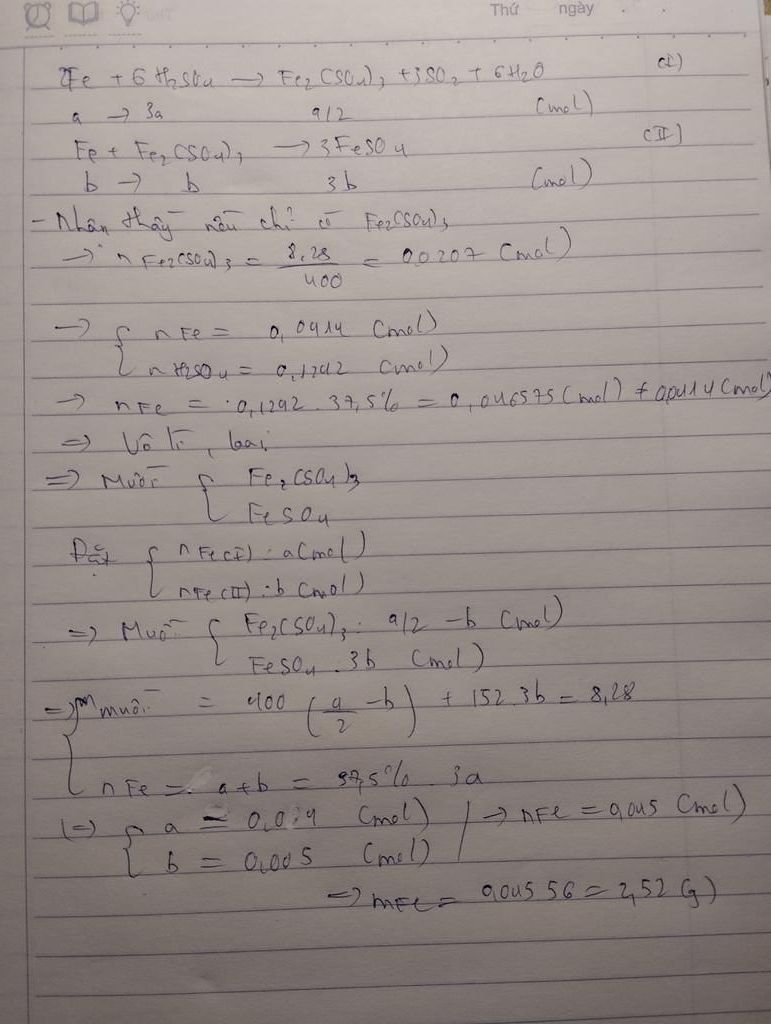 Thứ ngày
2Fe + 6H2SO4 → Fe2(SO4)3 + 3SO2 + 6H2O (I)
a → 3a a/2 (mol)
Fe + Fe2(SO4)3 → 3FeSO4 (II)
b → b 3b (mol)
- Nhận thấy nếu chỉ có Fe2(SO4)3
→ n Fe2(SO4)3 = 8,28/400 = 0,0207 (mol)
→ { nFe = 0,0414 (mol)
nH2SO4 = 0,1242 (mol)
→ nFe = 0,1242 . 37,5% = 0,046575 (mol) ≠ 0,0414 (mol)
=> Vô lí, loại
=> Muối { Fe2(SO4)3
FeSO4
Đặt { nFe(I) : a (mol)
nFe(II) : b (mol)
=> Muối { Fe2(SO4)3 : a/2 - b (mol)
FeSO4 : 3b (mol)
=> { m muối = 400 (a/2 - b) + 152.3b = 8,28
nFe = a + b = 37,5% . 3a
<=> { a = 0,04 (mol) → nFe = 0,045 (mol)
b = 0,005 (mol)
=> mFe = 0,045.56 = 2,52 (g)